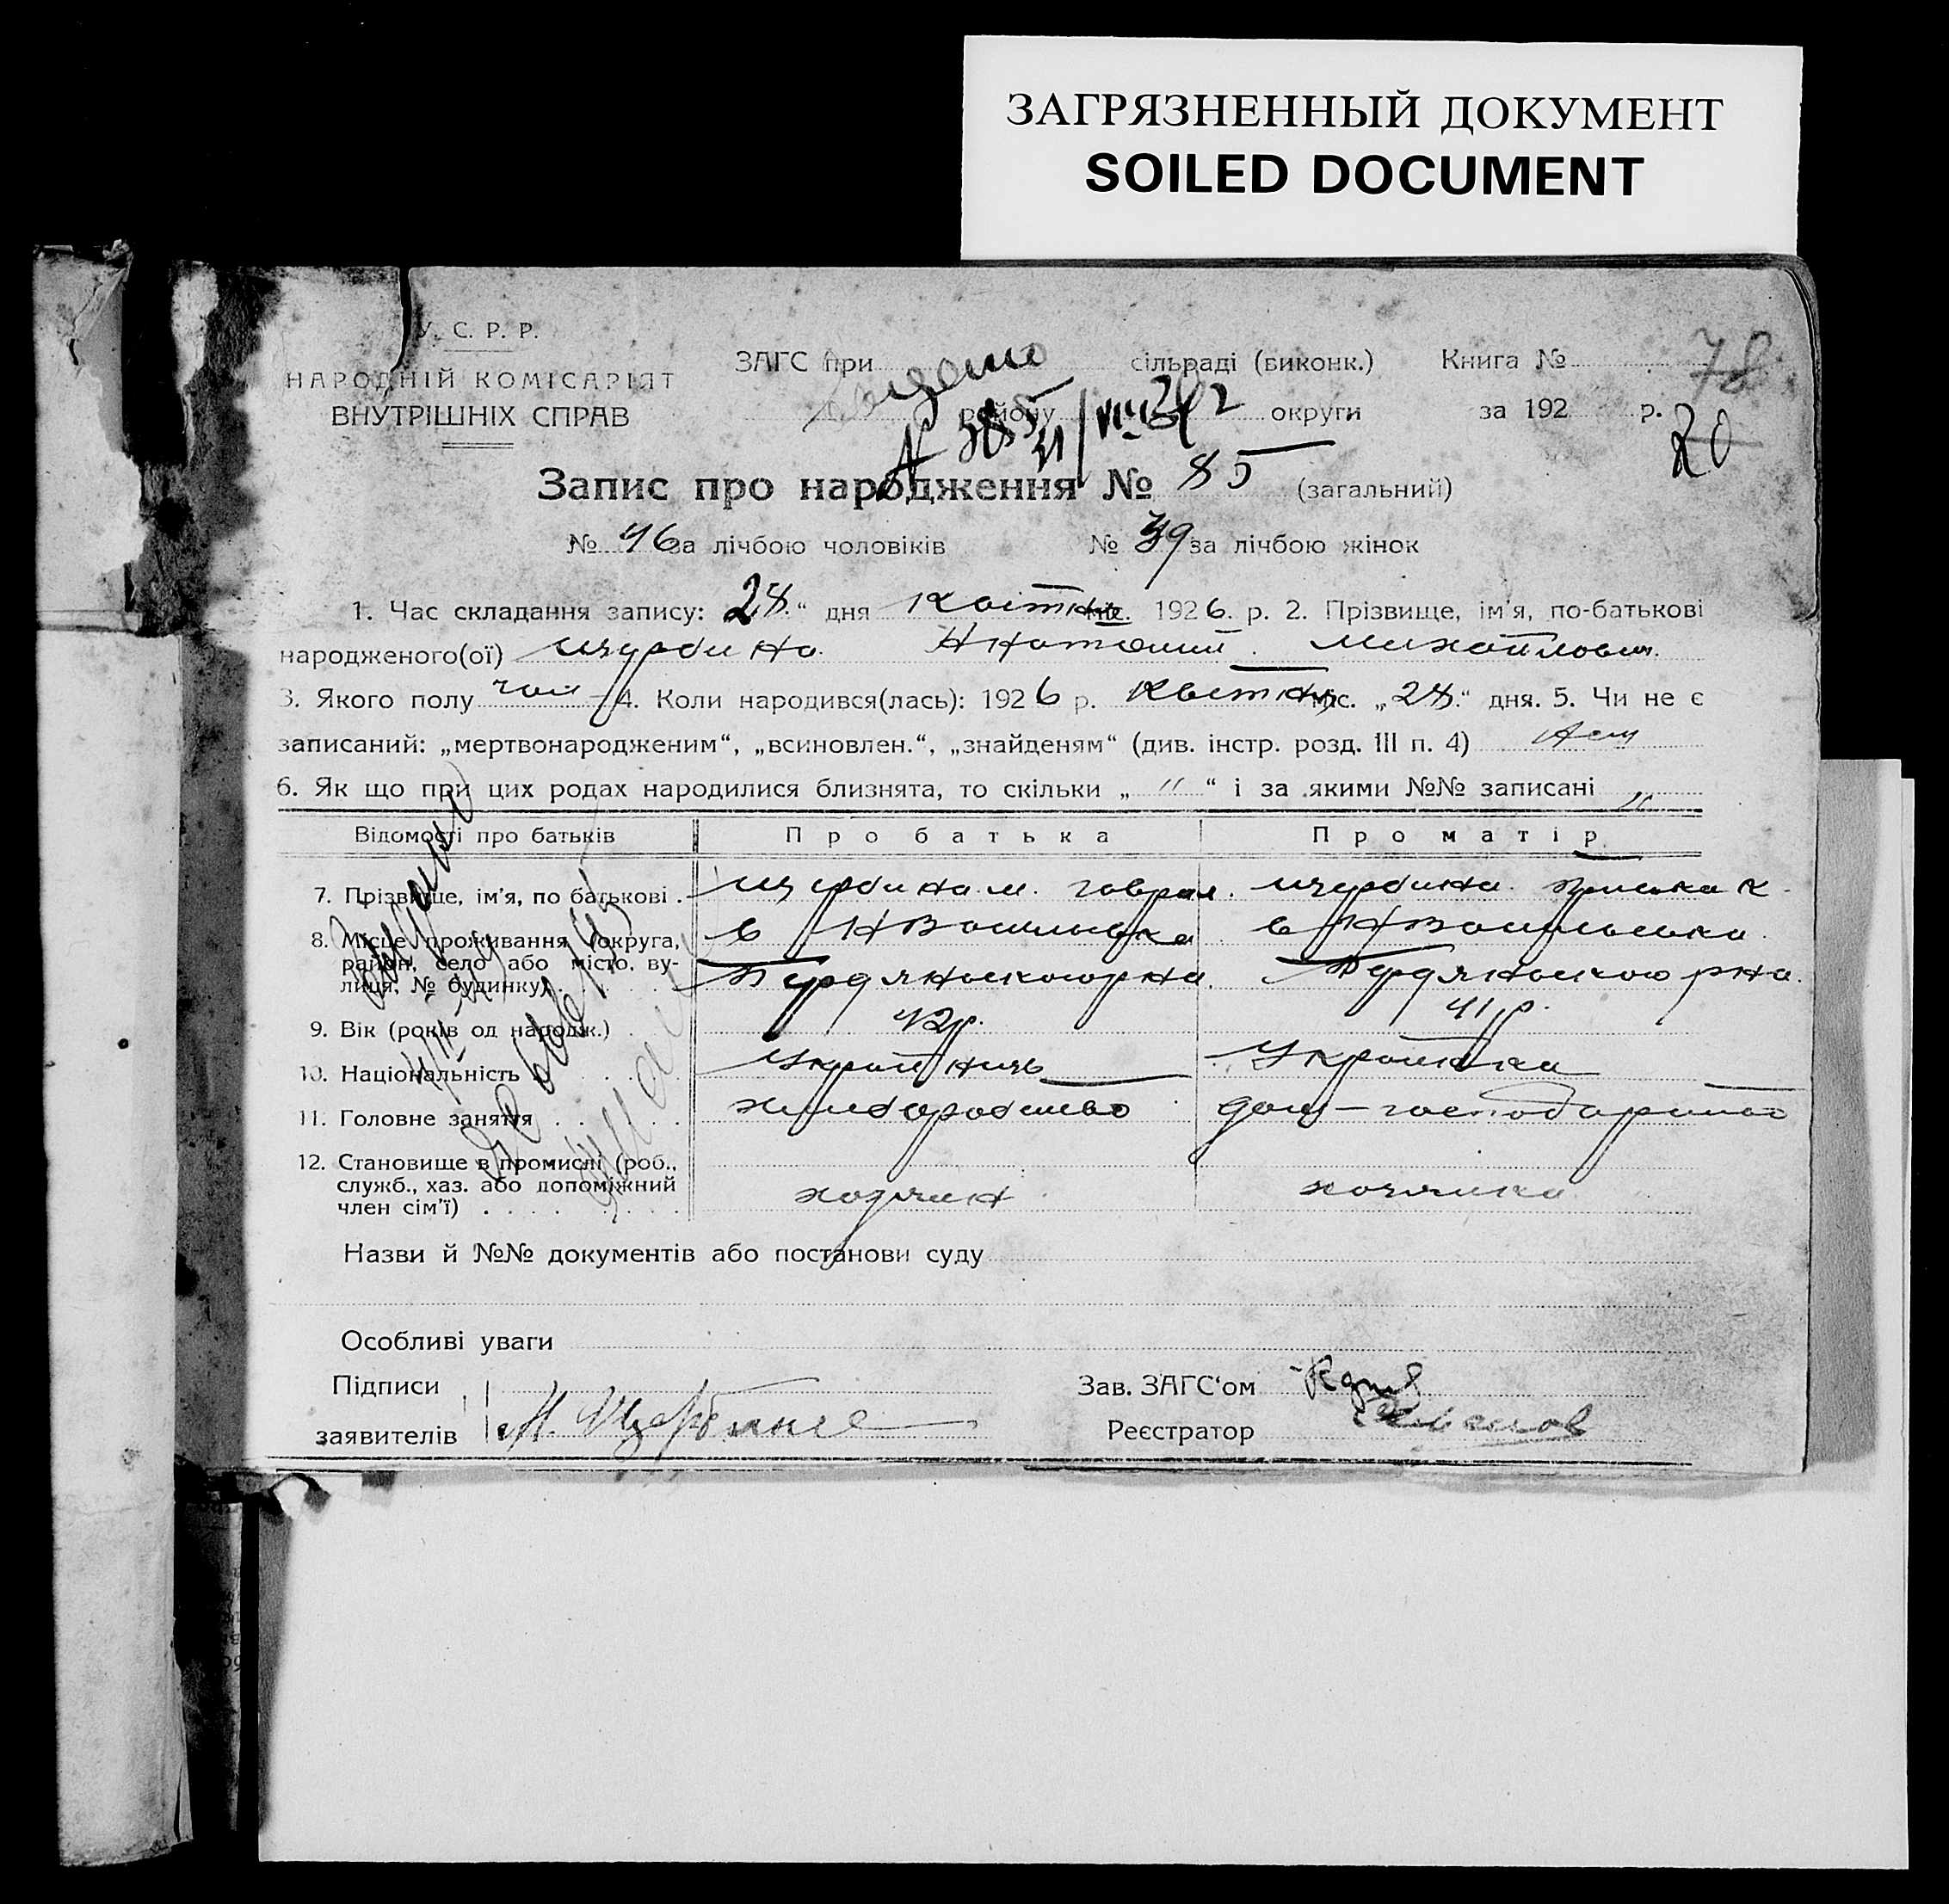 ЗАГРЯЗНЕННЫЙ ДОКУМЕНТ
SOILED DOCUMENT
У. С. Р. Р.
НАРОДНІЙ КОМІСАРІЯТ
ВНУТРІШНІХ СПРАВ
ЗАГС при сільраді (виконк.) Книга № 78
району округи за 192 р. 20
Запис про народження № 85 (загальний)
№ 46 за лічбою чоловіків № 39 за лічбою жінок
1. Час складання запису: 28 “ дня Квітня міс. 1926. р. 2. Прізвище, ім'я, по-батькові
народженого(ої) Щурбина Анатолий Михайлович
3. Якого полу чол 4. Коли народився(лась): 1926 р. Квітня міс. „28“ дня. 5. Чи не є
записаний: „мертвонародженим“, „всиновлен.“, „знайденям“ (див. інстр. розд. III п. 4)
6. Як що при цих родах народилися близнята, то скільки „ " “ і за якими №№ записані "
Відомості про батьків Про батька Про матір
7. Прізвище, ім'я, по батькові . Щурбина М. Гаврил. Щурбина
8. Місце проживання (округа, район, село або місто, вулиця, № будинку) . в НВасильівка в НВасильівка
Бердянського рна. Бердянського рна.
9. Вік (років од народж.) . 42р. 41р.
10. Національність Українець Українка
11. Головне заняття . . . хліборобство дом-господарство
12. Становище в промислі (роб.,
служб., хаз. або допоміжний
член сім'ї) . . . . хозяин хозяйка
Назви й №№ документів або постанови суду
Особливі уваги
Підписи
заявителів М. Щербина
Зав. ЗАГС'ом
Реєстратор